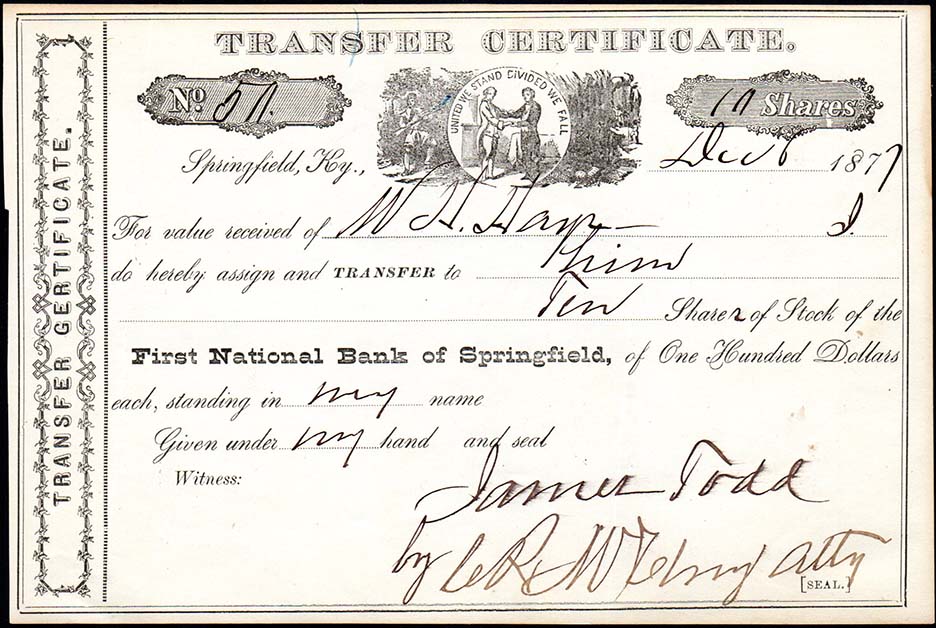 TRANSFER CERTIFICATE.
TRANSFER CERTIFICATE.
No. 
UNITED WE STAND DIVIDED WE FALL
10 Shares
Springfield, Ky., Dec 1877
For value received of W H. Hays I.
do hereby assign and TRANSFER to him
Ten Shares of Stock of the
First National Bank of Springfield, of One Hundred Dollars
each, standing in my name
Given under my hand and seal
Witness:
James Todd
by Atty
[SEAL.]